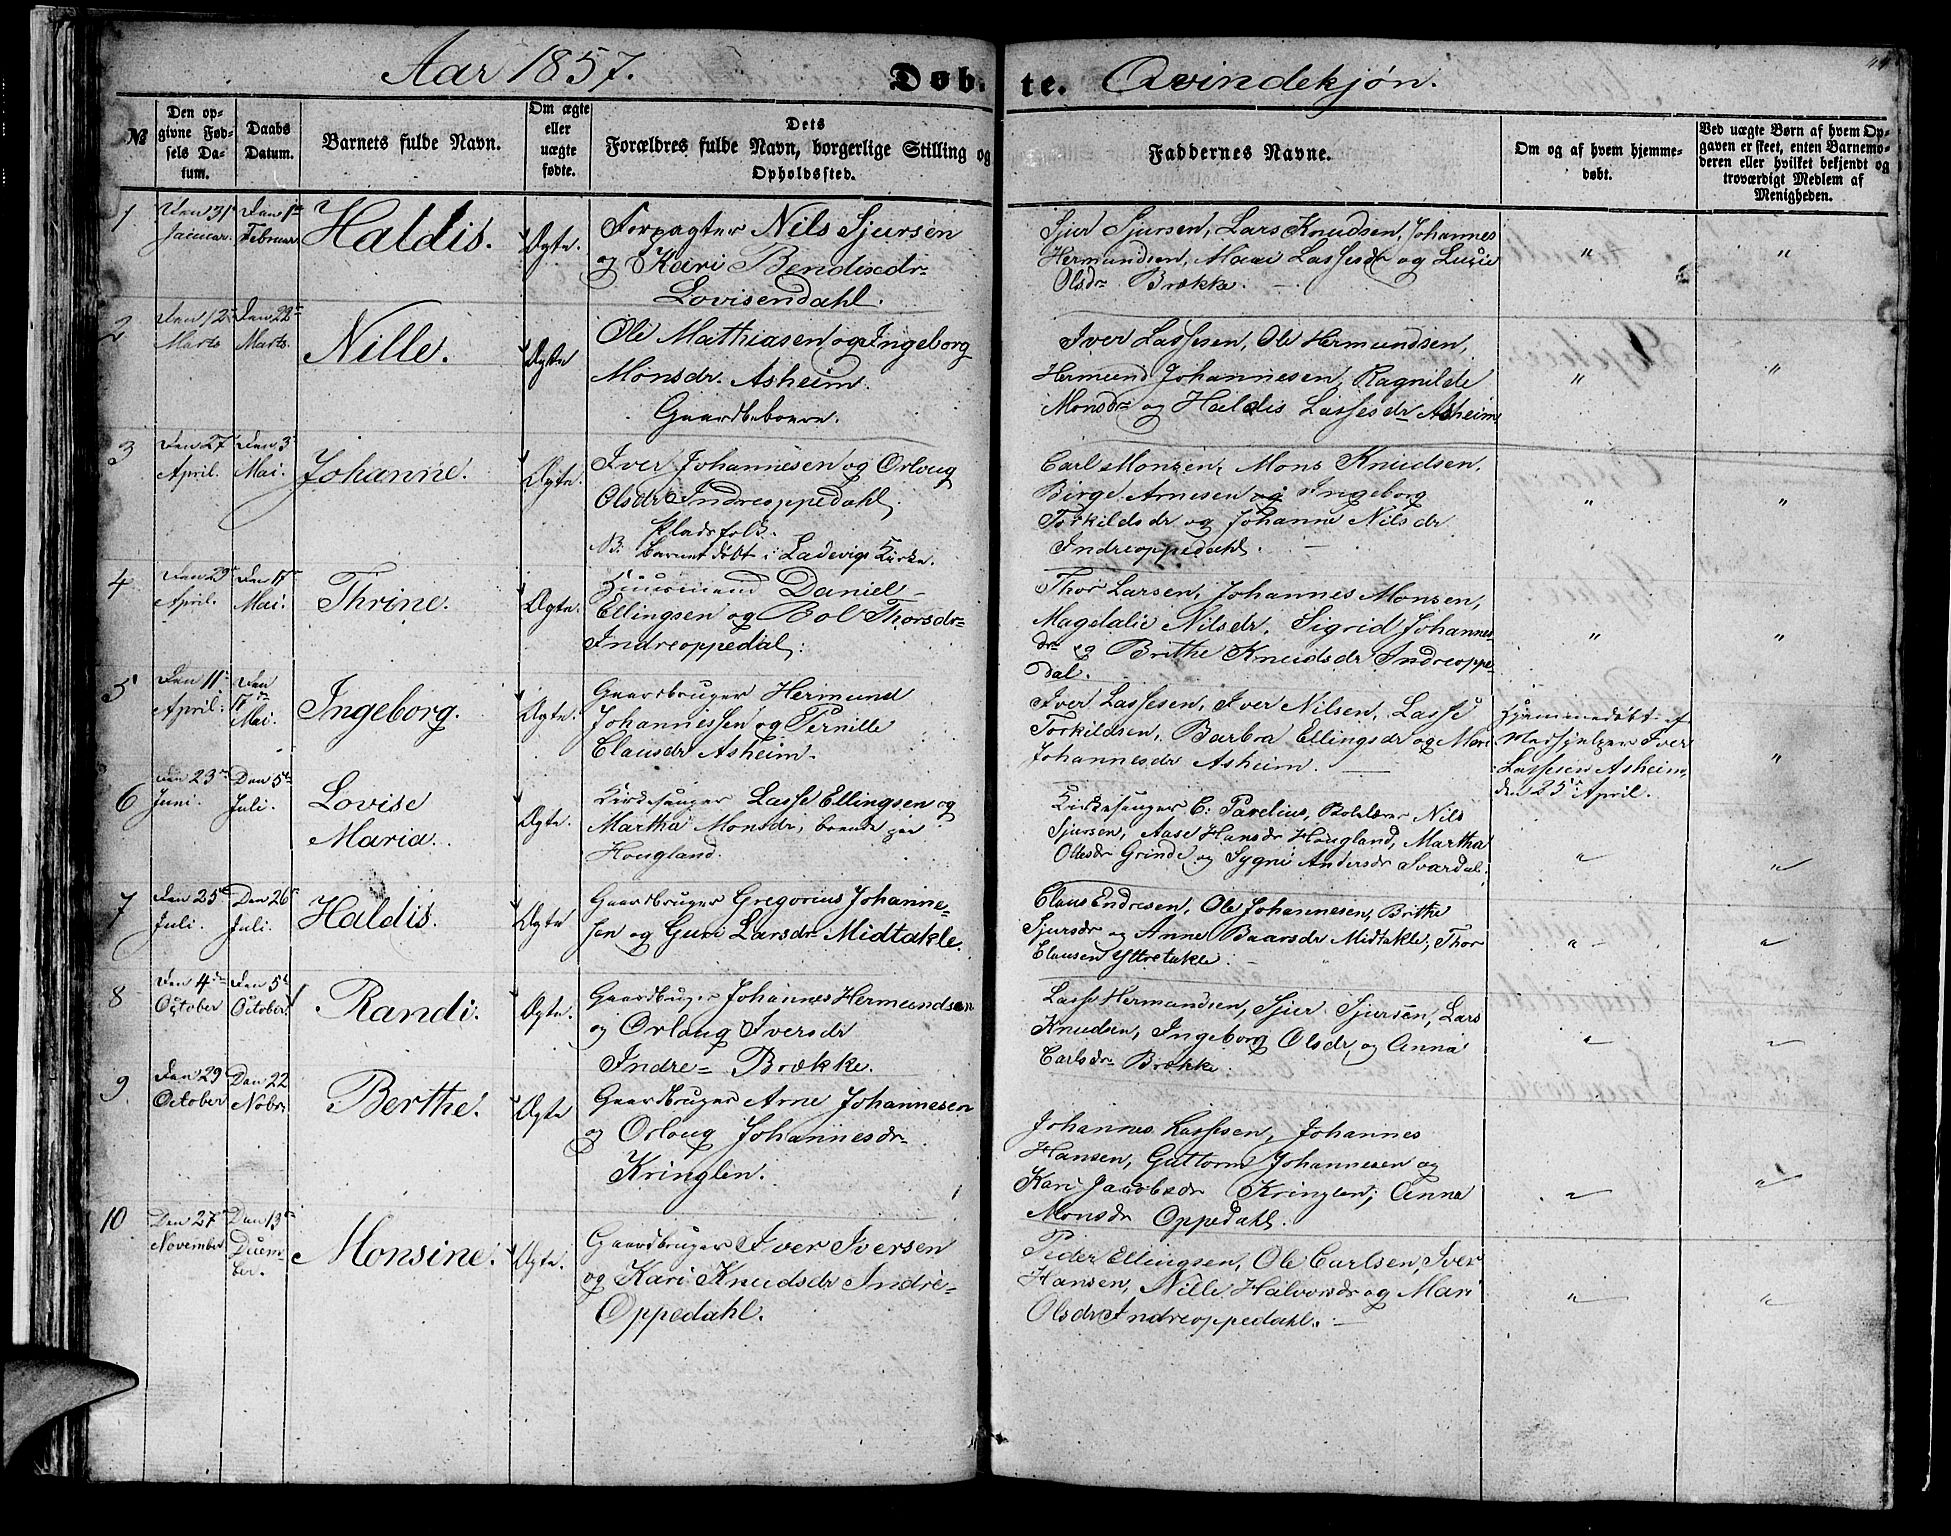 Aar 1857. Døb- te. Qvindekjøn.
№
Den op-
givne Fød-
sels Da-
tum.
Daabs
Datum.
Barnets fulde Navn.
Om ægte
eller
uægte
fødte.
Dets
Forældres fulde Navn, borgerlige Stilling og
Opholdssted.
Faddernes Navne.
Om og af hvem hjemme-
døbt.
Ved uægte Børn af hvem Op-
gaven er skeet, enten Barnemo-
deren eller hvilket bekjendt og
troværdigt Medlem af
Menigheden.
1
Den 31
Januar.
Den 1ste
Februar
Haldis.
Ægte.
Forpagter Nils Sjursen
og Kari Bendixdr
Lovisendahl.
Sjur Sjursen, Lars Knudsen, Johannes
Hermundsen, Mari Lassesdr og Luzie
Olsdr Brække.
" "
2
Den 12
Marts
Den 22
Marts.
Nille.
Ægte
Ole Mathiasen og Ingeborg
Monsdr. Asheim.
Gaardbeboere.
Iver Lassesen, Ole Hermundsen,
Hermund Johannesen, Ragnilde
Monsdr og Haldis Lassesdr Asheim
" "
3
Den 27
April.
Den 3
Mai.
Johanne.
Ægte.
Iver Johannesen og Orloug
Olsdr Indreoppedahl,
Pladsfolk.
NB. barnet døbt i Ladevigs Kirke.
Carl Monsen, Mons Knudsen,
Birge Arnesen og Ingeborg
Torkildsdr og Johanne Nilsdr
Indreoppedahl.
" "
4
Den 29
April.
Den 17
Mai.
Thrine.
Ægte.
Huusmand Daniel
Ellingsen og Bol Thorsdr
Indreoppedal.
Thor Larsen, Johannes Monsen,
Magdalie Nilsdr, Sigrid Johannes-
dr og Brithe Knudsdr Indreoppe-
dal.
" "
5
Den 11
April.
Den
17de
Mai.
Ingeborg.
Ægte.
Gaardbruger Hermund
Johannessen og Pernille
Clausdr Asheim.
Iver Lassesen, Iver Nilsen, Lasse
Torkildsen, Barbra Ellingsdr og Mari
Johannesdr Asheim.
Hjemmedøbt af
Medhjelper Iver
Lassesen Asheim,
den 25 April.
"
6
Den 23
Juni.
Den 5te
Juli.
Lovise
Maria.
Ægte.
Kirkesanger Lasse Ellingsen og
Martha Monsdr, boende paa
Hougland.
Kirkesanger C. Pavelius, Nils
Sjursen, Aase Hansdr Hougland, Martha
Olesdr Grinde og Sygni Andersdr Svardal.
" "
7
Den 25
Juli.
Den 26
Juli.
Haldis.
Ægte
Gaardbruger Gregorius Johanne-
sen og Guri Larsdr Midtakle.
Claus Endresen, Ole Johannesen, Brithe
Sjursdr og Anne Baarsdr Midtakle, Thor
Clausen Yttretakle.
" "
8
Den 4de
October
Den 5te
October.
Randi.
Ægte.
Gaardbruger Johannes Hermundsen
og Orloug Iversdr
Indre- Brække.
Lasse Hermundsen, Sjur Sjursen, Lars
Knudsen, Ingeborg Olsdr og Anna
Carlsdr Brække.
" "
9
Den 29
October
Den 22
Nobr.
Berthe.
Ægte
Gaardbruger Arne Johannesen
og Orloug Johannesdr
Kringlen.
Johannes Lassesen, Johannes
Hansen, Guttorm Johannesen og
Kari Jacobsdr Kringlen; Anna
Monsdr Oppedahl.
" "
10
Den 27
November
Den 13de
Decem-
ber.
Monsine.
Ægte.
Gaardbruger Iver Iversen
og Kari Knudsdr Indre-
Oppedahl.
Peder Ellingsen, Ole Carlsen, Iver
Hansen, Nille Halvorsdr og Mari
Olsdr Indreoppedahl.
" "